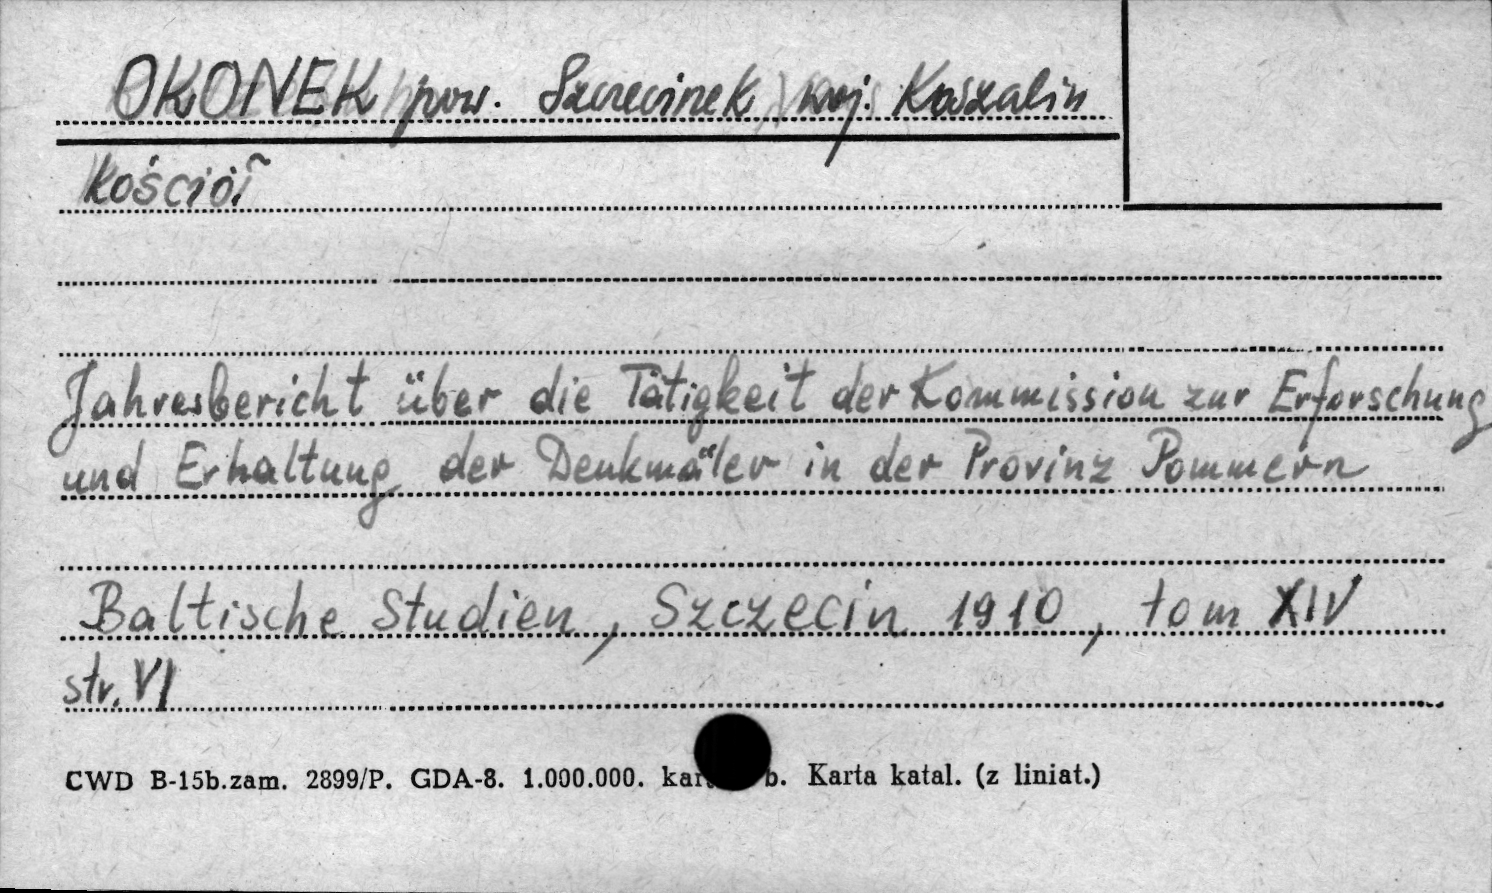 OKONEK pow. Szczecinek, woj. Koszalin
Kościół
Jahresbericht über die Tätigkeit der Kommission zur Erforschung
und Erhaltung der Denkmäler in der Provinz Pommern
Baltische Studien, Szczecin 1910, tom XIV
str. VI
CWD B-15b.zam. 2899/P. GDA-8. 1.000.000. b. Karta katal. (z liniat.)